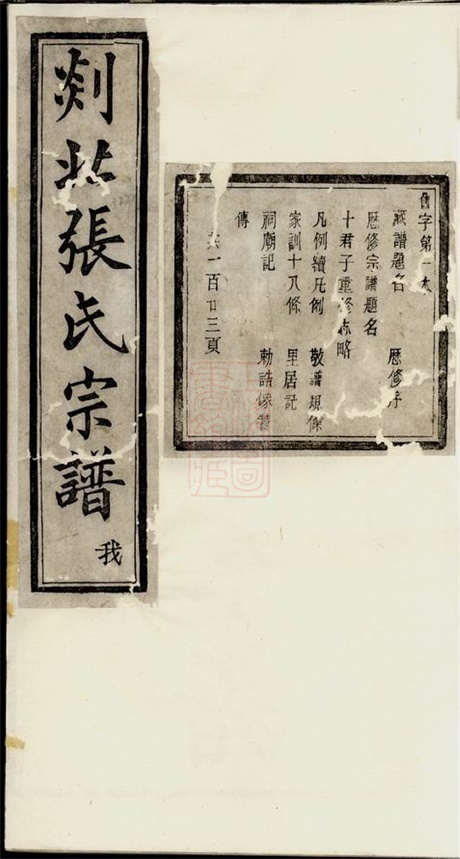 剡北張氏宗譜 我
舊字第一本
藏譜題名 歷修序
歷修宗譜題名
十君子重修志略
凡例續凡例 敬譜規條
家訓十八條 里居記
祠廟記 勅誥像贊
傳
共一百廿三頁